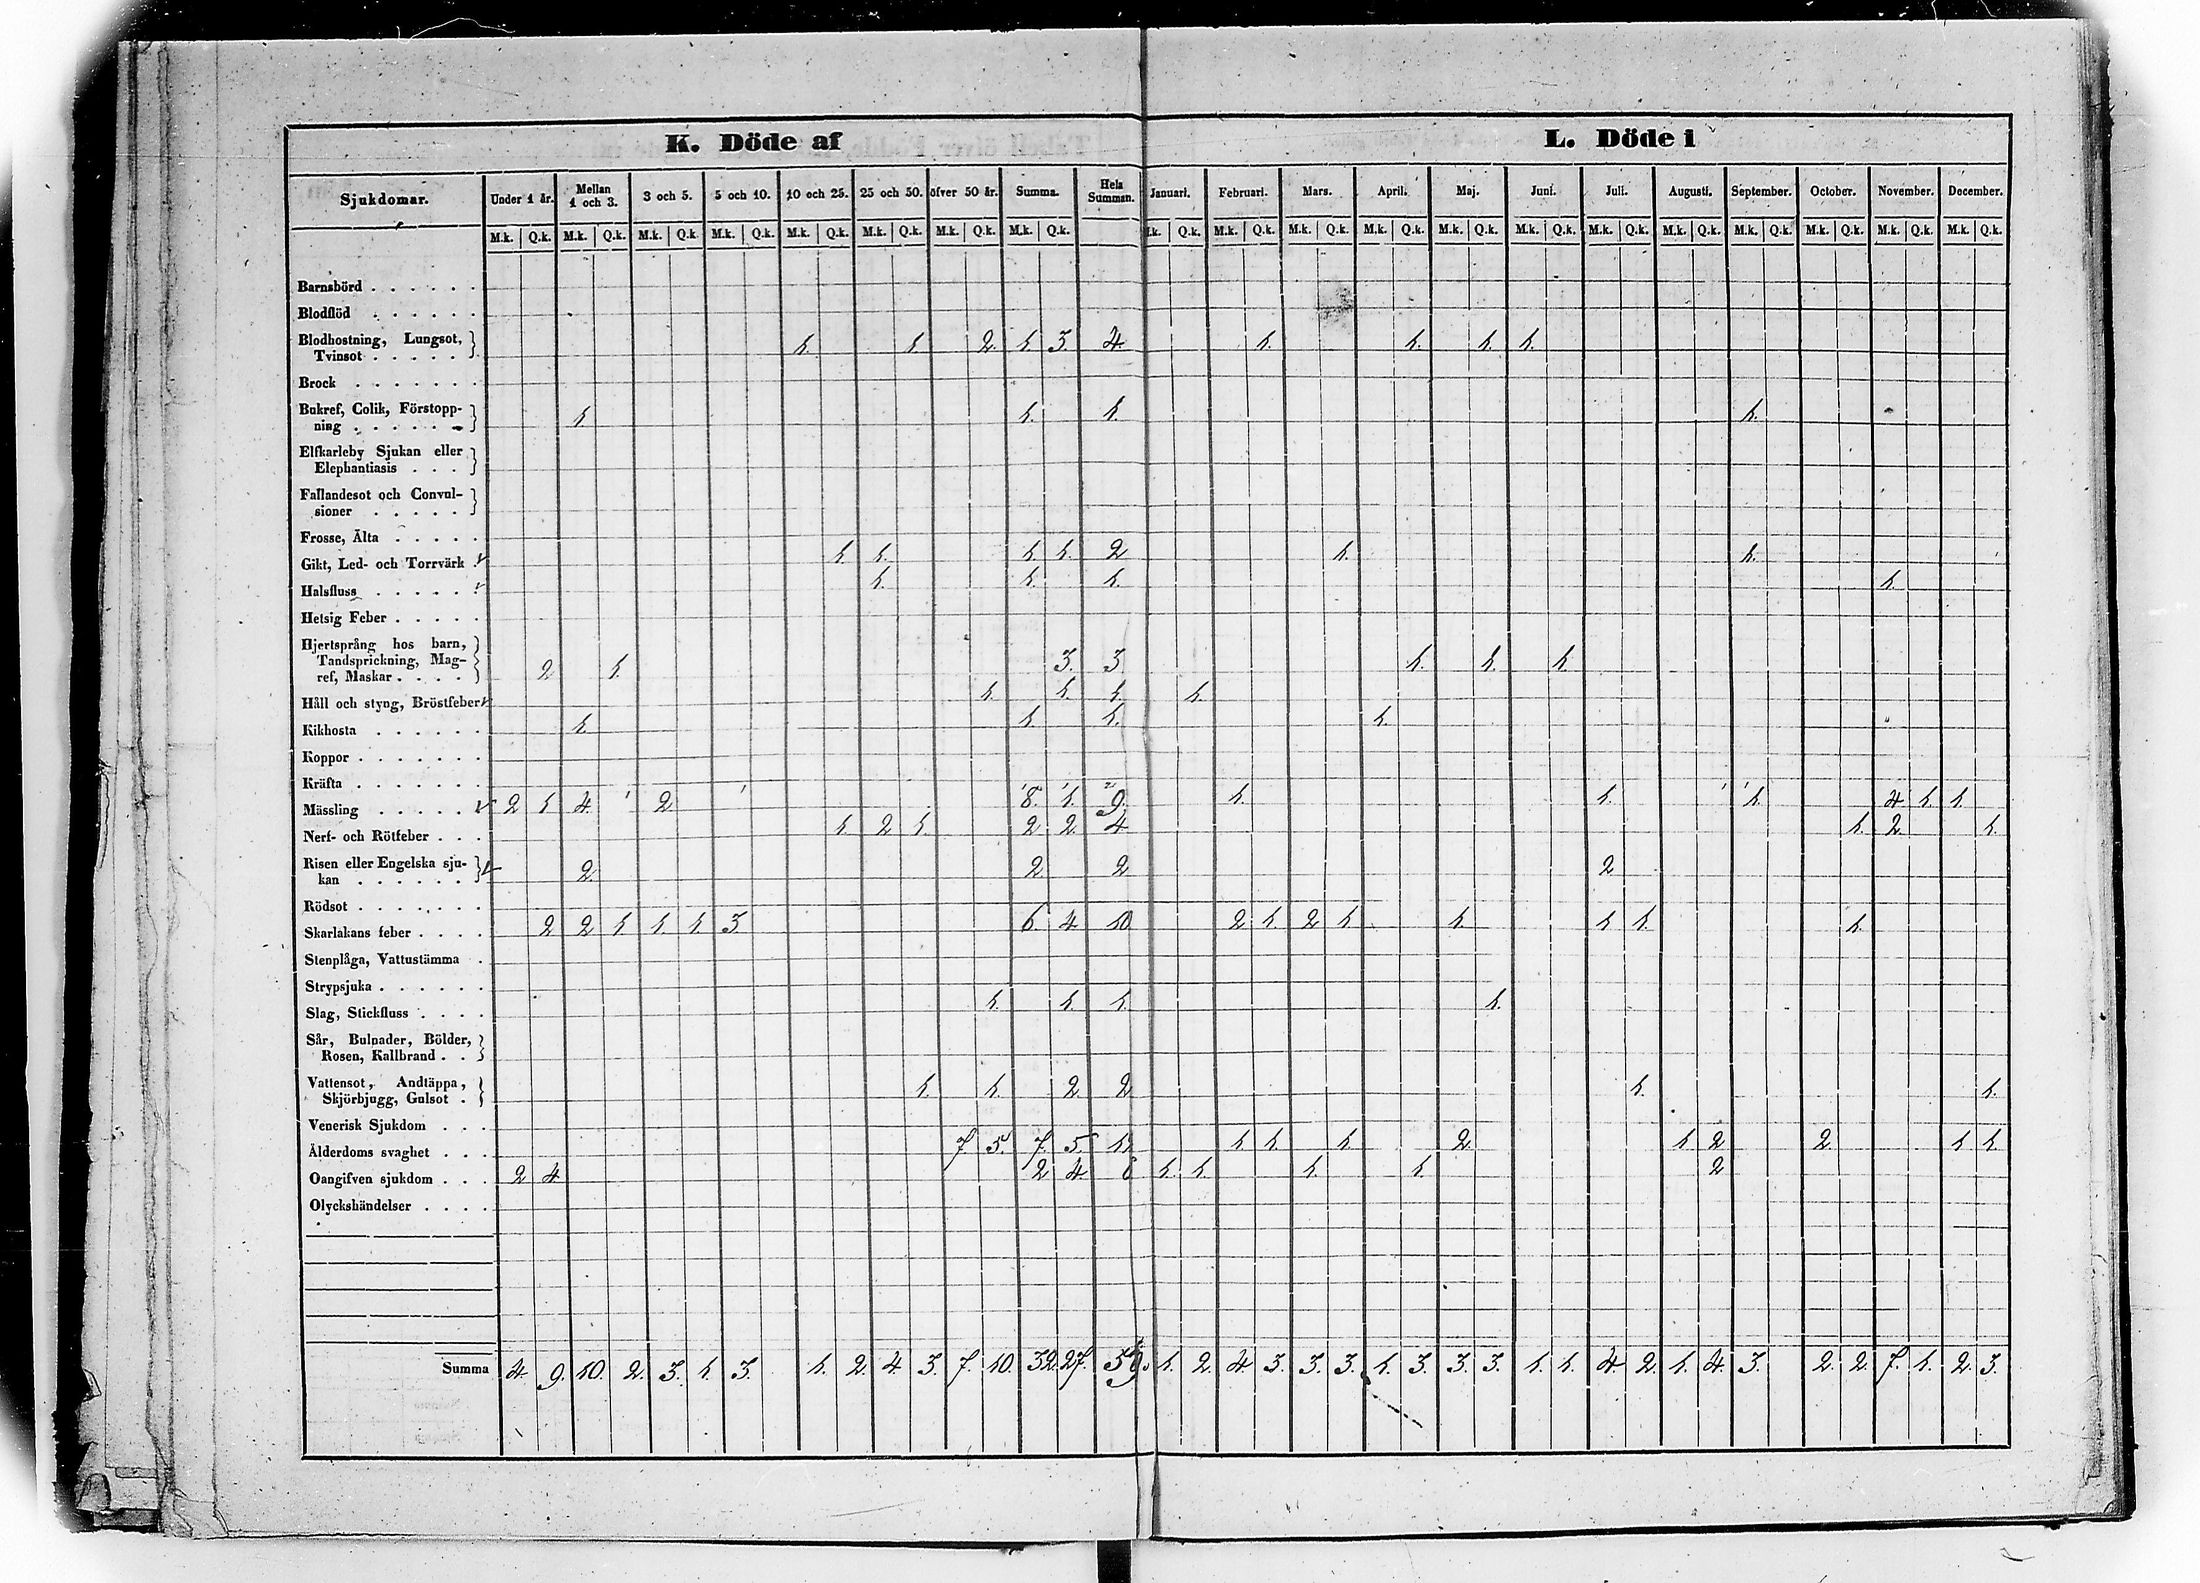 K. Döde af L. Döde i
Sjukdomar. Under 1 år. Mellan 1 och 3. 3 och 5. 5 och 10. 10 och 25. 25 och 50. öfver 50 år. Summa. Hela Summan. Januari. Februari. Mars. April. Maj. Juni. Juli. Augusti. September. October. November. December.
M.k. Q.k. M.k. Q.k. M.k. Q.k. M.k. Q.k. M.k. Q.k. M.k. Q.k. M.k. Q.k. M.k. Q.k. I.k. Q.k. M.k. Q.k. M.k. Q.k. M.k. Q.k. M.k. Q.k. M.k. Q.k. M.k. Q.k. M.k. Q.k. M.k. Q.k. M.k. Q.k. M.k. Q.k. M.k. Q.k.
Barnsbörd . . . . . .
Blodflöd . . . . . .
Blodhostning, Lungsot,
Tvinsot . . . . . 1. 1. 2. 1. 3. 4. 1. 1. 1. 1.
Brock . . . . . . .
Bukref, Colik, Förstopp-
ning . . . . . . 1 1. 1. 1.
Elfkarleby Sjukan eller
Elephantiasis . . .
Fallandesot och Convul-
sioner . . . . .
Frosse, Älta . . . . .
Gikt, Led- och Torrvärk . 1 1. 1. 1. 2 1. 1.
Halsfluss . . . . . . 1. 1. 1. 1.
Hetsig Feber . . . . .
Hjertsprång hos barn,
Tandsprickning, Mag-
ref, Maskar . . . . 2 1. 3. 3 1. 1. 1.
Håll och styng, Bröstfeber 1. 1. 1. 1.
Kikhosta . . . . . . 1 1. 1. 1.
Koppor . . . . . . .
Kräfta . . . . . . .
Mässling . . . . . . 2 1 4. 2 8. 1. 9. 1. 1. 1. 4 1 1.
Nerf- och Rötfeber . . . 1 2 1. 2 2 4 1. 2 1.
Risen eller Engelska sju-
kan . . . . . . 2. 2 2 2
Rödsot . . . . . . .
Skarlakans feber . . . . 2 2 1 1. 1. 3. 6. 4 10 2 1. 2 1 1. 1 1. 1.
Stenplåga, Vattustämma .
Strypsjuka . . . . . .
Slag, Stickfluss . . . . 1. 1. 1. 1.
Sår, Bulnader, Bölder,
Rosen, Kallbrand . .
Vattensot, Andtäppa,
Skjörbjugg, Gulsot . 1. 1. 2. 2 1. 1.
Venerisk Sjukdom . . .
Ålderdoms svaghet . . . 7 5. 7. 5. 1 1. 1. 2 1 2 2 1 1.
Oangifven sjukdom . . . 2 4 2 4. 6 1. 1. 1. 1. 2
Olyckshändelser . . . .
Summa 4. 9. 10. 2. 3. 1. 3. 1. 2. 4. 3. 7. 10. 32. 27. 59 1. 2. 4. 3. 3. 3. 1. 3. 3. 3. 1. 1. 4. 2. 1. 4. 3. 2. 2. 7. 1. 2. 3.